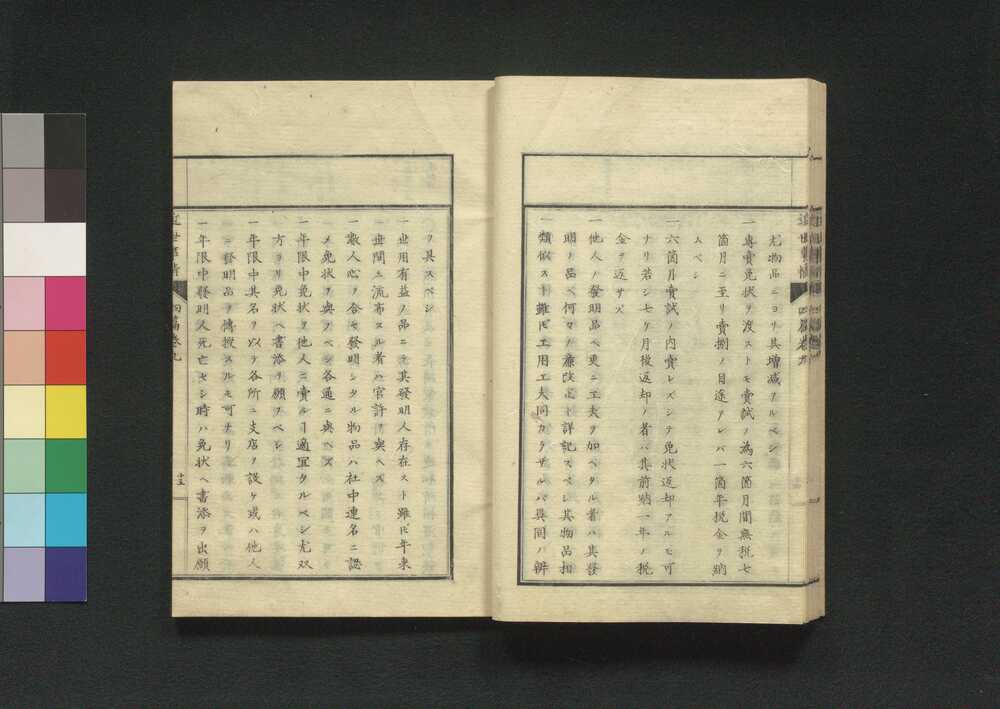 尤物品ニヨリ其増減アルベシ
一專賣免状ヲ渡ストモ賣試ノ為六箇月間無税七
箇月ニ至リ賣捌ノ目途アレバ一箇年税金ヲ納
ムベシ
一六箇月賣試ノ内賣レズシテ免状返却アルモ可
ナリ若シ七ケ月後返却ノ者ハ其前納一年ノ税
金ヲ返サズ
一他人ノ發明品ヘ更ニ工夫ヲ加ヘタル者ハ其發
明ノ品ヘ何々ノ廉改正ト詳記スベシ其物品相
類似スト雖ドモ工用工夫同カラザルハ異同ハ辨
近世事情 四篇卷九
ヲ具スベシ
一世用有益ノ品ニテ其發明人存在スト雖ドモ年来
世間ニ流布スル者ハ官許ヲ與ヘズ
一數人心ヲ合セ發明シタル物品ハ社中連名ニ認
メ免状ヲ與フベシ各通ニ與ヘズ
一年限中免状ヲ他人ニ賣ルヿ適宜タルベシ尤双
方ヨリ免状ヘ書添ヲ願フベシ
一年限中其名ヲ以テ各所ニ支店ヲ設ケ或ハ他人
ニ發明品ヲ傳授スルモ可ナリ
一年限中發明人死亡セシ時ハ免状ヘ書添ヲ出願
近世事情 四篇卷九
十五